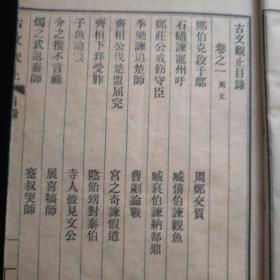 古文觀止目錄
卷之一 周文
鄭伯克段于鄢
周鄭交質
石碏諫寵州吁
臧僖伯諫觀魚
鄭莊公戒飭守臣
臧哀伯諫納郜鼎
季梁諫追楚師
曹劌論戰
齊桓公伐楚盟屈完
宮之奇諫假道
齊桓下拜受胙
陰飴甥對秦伯
子魚論戰
寺人披見文公
介之推不言祿
展喜犒師
燭之武退秦師
蹇叔哭師
古文觀止 目錄